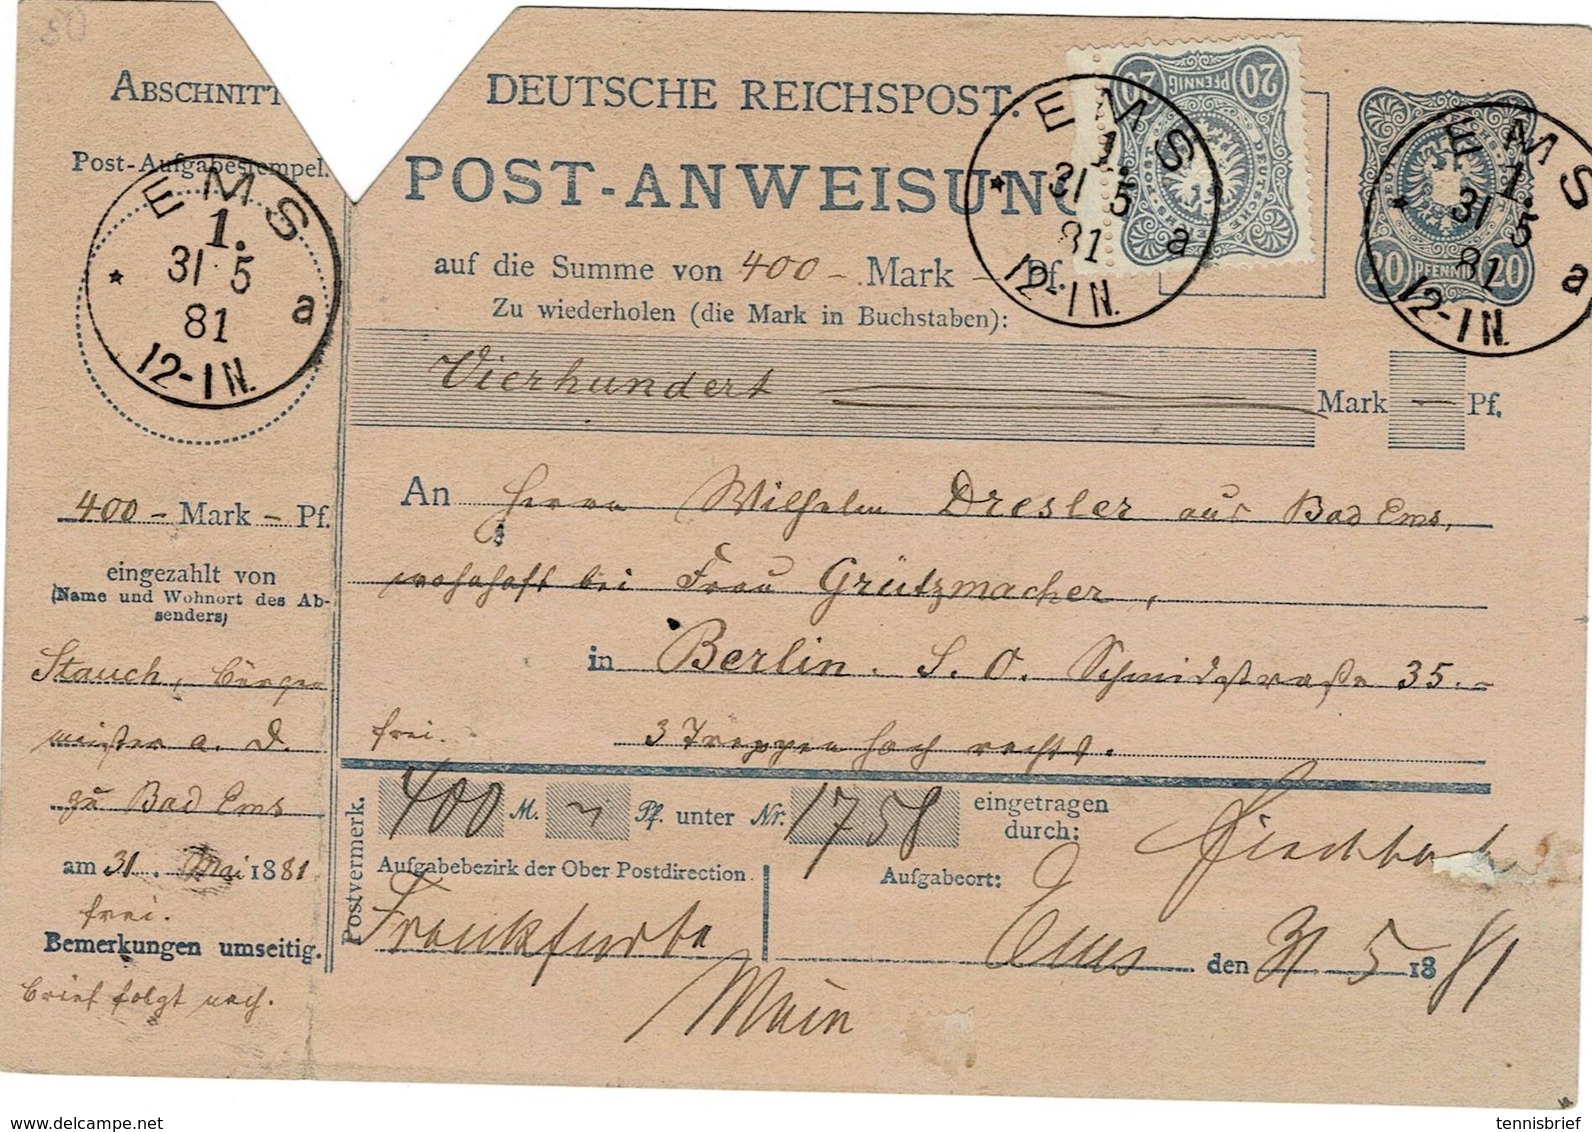 50
ABSCHNITT
Post-Aufgabestempel.
EMS
1.
31 5
81
* a
12-1N.
400 - Mark - Pf.
eingezahlt von
(Name und Wohnort des Ab-
senders)
Stauch, Bürger
meister a. D.
zu Bad Ems
am 31. Mai 1881
frei.
Bemerkungen umseitig.
Brief folgt nach.
DEUTSCHE REICHSPOST.
POST-ANWEISUNG
auf die Summe von 400 - Mark - Pf.
Zu wiederholen (die Mark in Buchstaben):
Vierhundert Mark - Pf.
An Herrn Wilhelm Dresler aus Bad Ems,
wohnhaft bei Frau Grützmacher,
in Berlin. S. O. Schmidstraße 35.-
frei. 3 Treppen hoch rechts.
Postvermerk.
400 M. Pf. unter Nr. 1758 eingetragen
durch:
Aufgabebezirk der Ober Postdirection
Aufgabeort:
Frankfurt a
Main
Ems den 31 5 1881
20 PFENNIG 20
DEUTSCHE REICHS-POST
EMS
1.
31 5
81
* a
12-1N.
20 PFENNIG 20
EMS
1.
31 5
81
* a
12-1N.
delcampe.net
tennisbrief